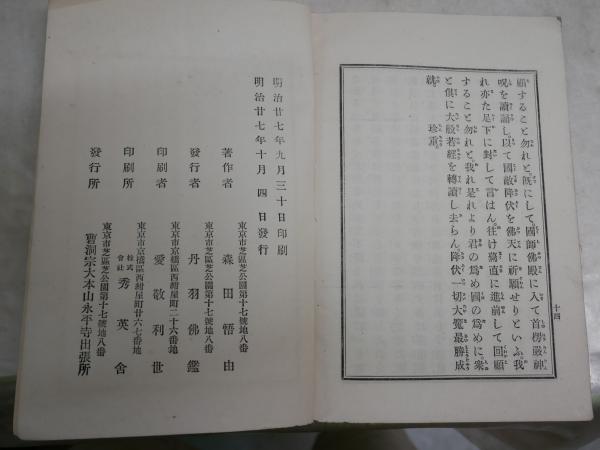 顧すること勿れと既にして國師佛殿に入て首楞嚴神
呪を諷誦し以て國敵降伏を佛天に祈願せりといふ我
れ亦た足下に對して言はん往け驀直に進前して回顧
すること勿れと我れ是れより君の爲め國の爲めに衆
と倶に大般若經を轉讀し去らん降伏一切大魔最勝成
就 珍重
十四
明治廿七年九月三十日印刷
明治廿七年十月四日發行
東京市芝區芝公園第十七號地八番
著作者 森田悟由
東京市芝區芝公園第十七號地八番
發行者 丹羽佛鑑
東京市京橋區西紺屋町二十六番地
印刷者 愛敬利世
東京市京橋區西紺屋町廿六七番地
印刷所 株式會社 秀英舍
東京市芝區芝公園第十七號地八番
發行所 曹洞宗大本山永平寺出張所